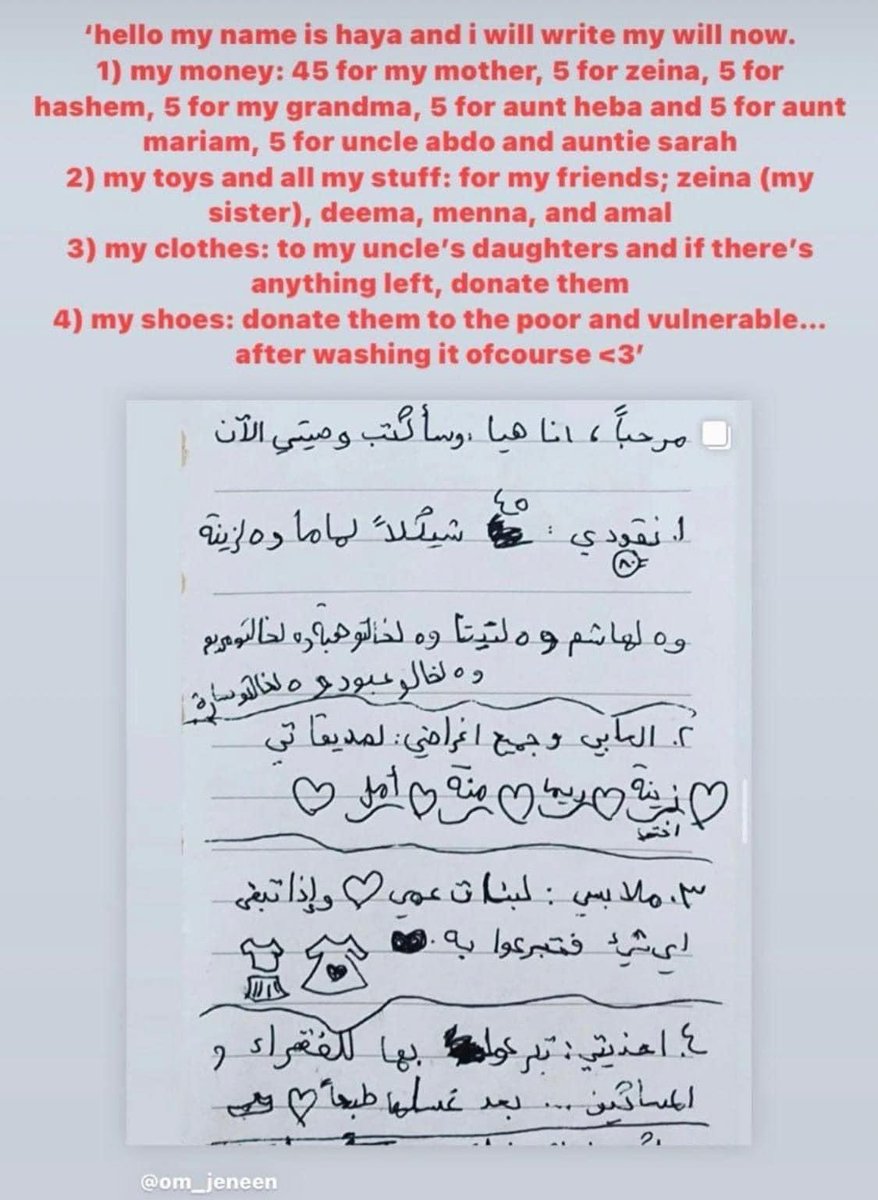 ‘hello my name is haya and i will write my will now.
1) my money: 45 for my mother, 5 for zeina, 5 for
hashem, 5 for my grandma, 5 for aunt heba and 5 for aunt
mariam, 5 for uncle abdo and auntie sarah
2) my toys and all my stuff: for my friends; zeina (my
sister), deema, menna, and amal
3) my clothes: to my uncle’s daughters and if there’s
anything left, donate them
4) my shoes: donate them to the poor and vulnerable...
after washing it ofcourse <3’
مرحباً، انا هيا، وسأكتب وصيتي الآن
٤٥
١. نقودي: شيكلاً لماما و٥ لزينة
٨٠
و٥ لهاشم و٥ لتيتا و٥ لخالتو هبة و٥ لخالتو مريم
و٥ لخالو عبود و٥ لخالتو سارة
٢. العابي وجميع اغراضي: لصديقاتي
زينة ريما منة أمل
اختي
٣. ملابسي: لبنات عمي وإذا تبقى
اي شيء فتبرعوا به.
٤. احذيتي: تبرعوا بها للفقراء و
المساكين ... بعد غسلها طبعاً
@om_jeneen